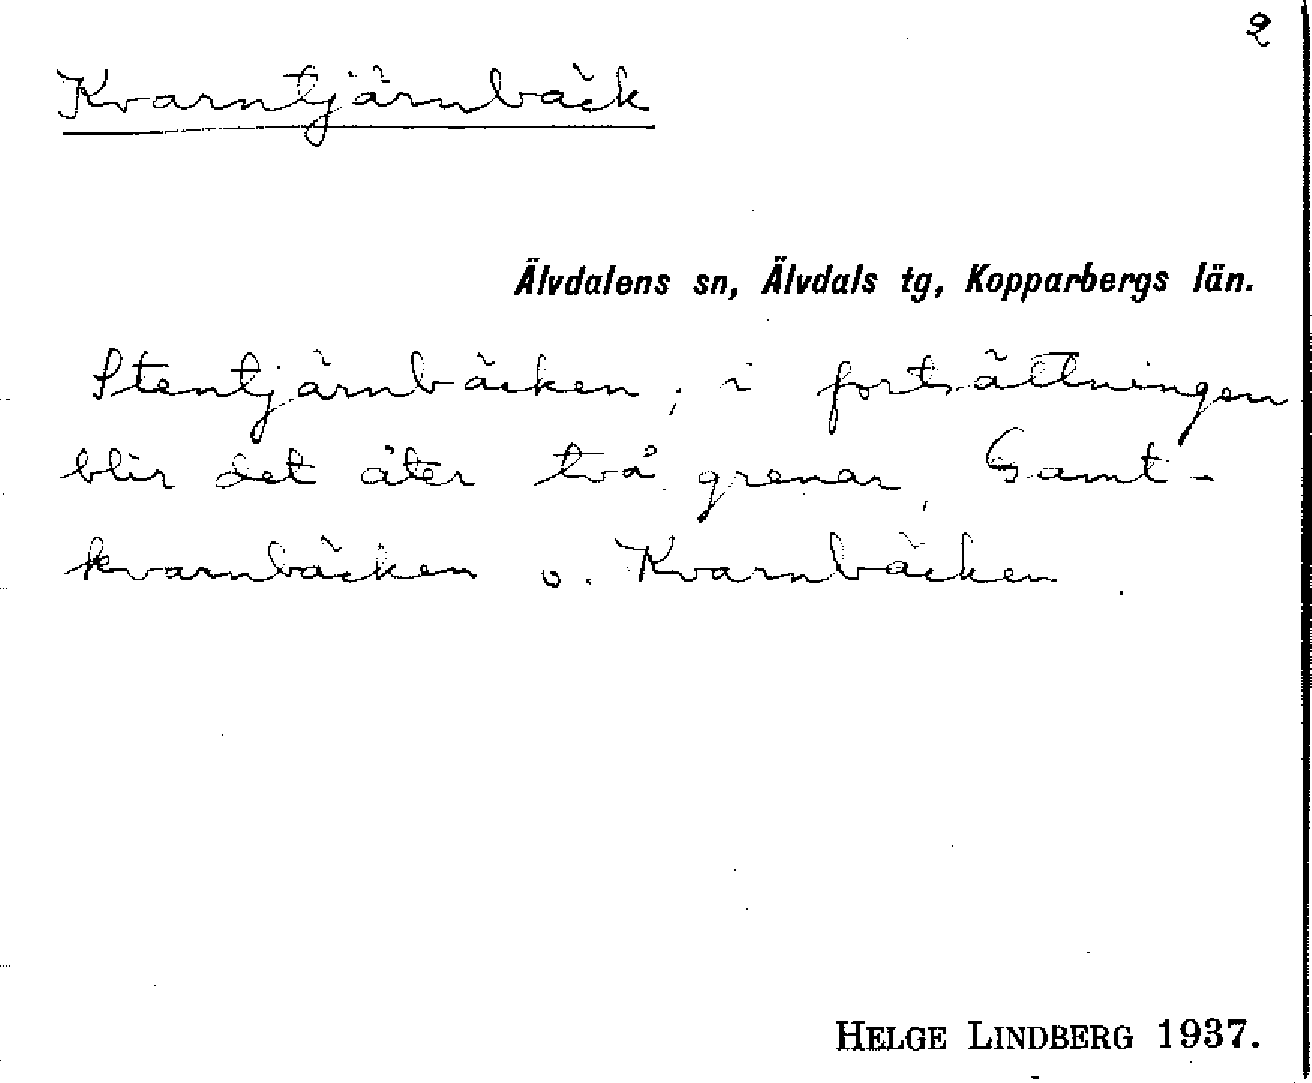 2
Kvarntjärnbäck
Älvdalens sn, Älvdals tg, Kopparbergs län.
Stentjärnbäcken; i fortsättningen
blir det åter två grenar, Gamt-
kvarnbäcken o. Kvarnbäcken
HELGE LINDBERG 1937.